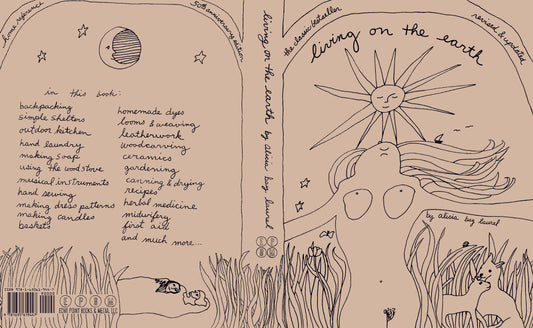 home reference
50th anniversary edition
in this book:
backpacking
simple shelters
outdoor kitchen
hand laundry
making soap
using the wood stove
musical instruments
hand sewing
making dress patterns
making candles
baskets
homemade dyes
looms & weaving
leatherwork
woodcarving
ceramics
gardening
canning & drying
recipes
herbal medicine
midwifery
first aid
and much more...
ECHO POINT BOOKS & MEDIA, LLC
living on the earth by alicia bay laurel
E P B M
the classic bestseller
revised & updated
living on the earth
by alicia bay laurel